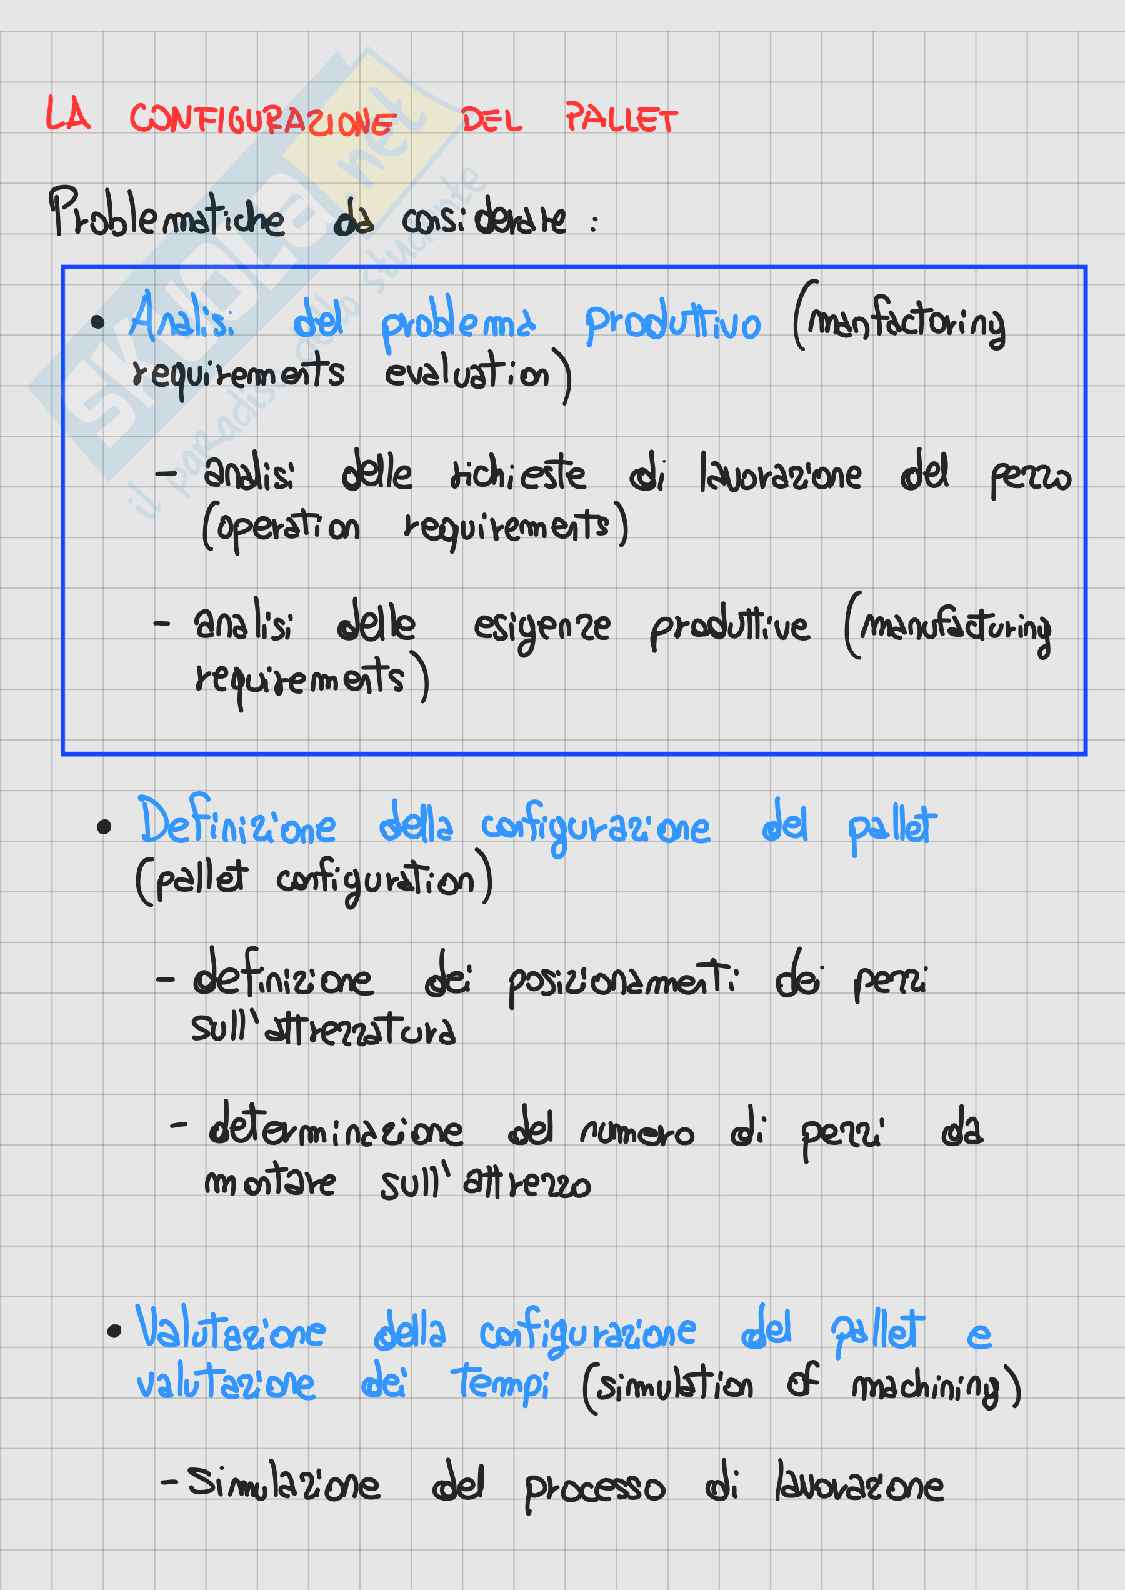 LA CONFIGURAZIONE DEL PALLET
Problematiche da considerare :
• Analisi del problema produttivo (manfactoring
requirements evaluation)
- analisi delle richieste di lavorazione del pezzo
(operation requirements)
- analisi delle esigenze produttive (manufacturing
requirements)
• Definizione della configurazione del pallet
(pallet configuration)
- definizione dei posizionamenti dei pezzi
sull'attrezzatura
- determinazione del numero di pezzi da
montare sull'attrezzo
• Valutazione della configurazione del pallet e
valutazione dei tempi (simulation of machining)
- Simulazione del processo di lavorazione
SKUOLA.net
il paradiso dello studente